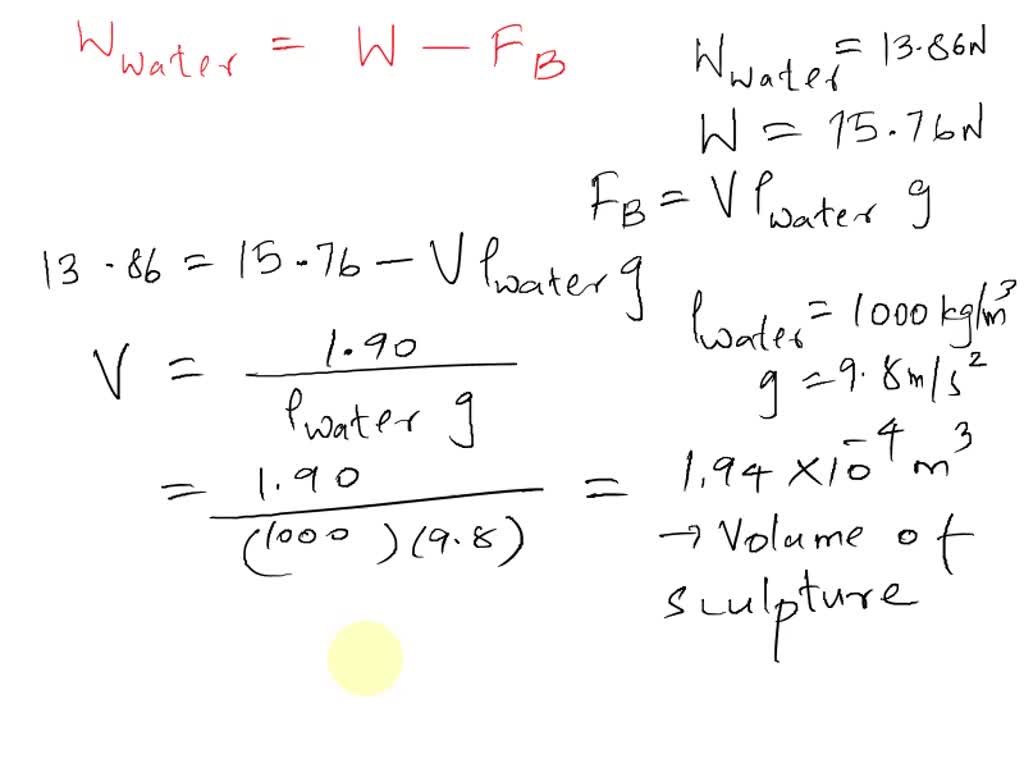 W_water = W − F_B
W_water = 13.86N
W = 15.76N
F_B = Vρ_water g
13.86 = 15.76 − Vρ_water g
ρ_water = 1000 kg/m³
g = 9.8 m/s²
V = 1.90 / ρ_water g
= 1.90 / (1000)(9.8) = 1.94 × 10⁻⁴ m³
→ Volume of
sculpture